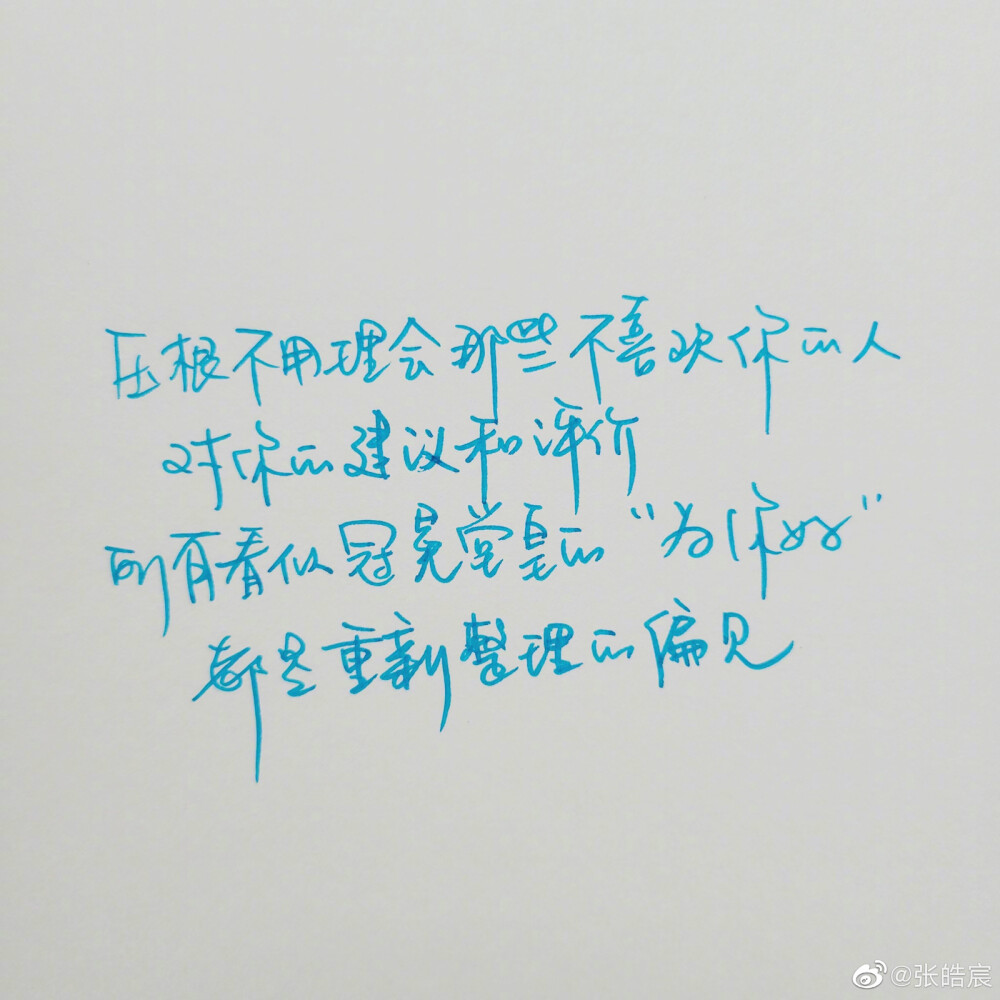 压根不用理会那些不喜欢你的人
对你的建议和评价
所有看似冠冕堂皇的“为你好”
都是重新整理的偏见
@张皓宸